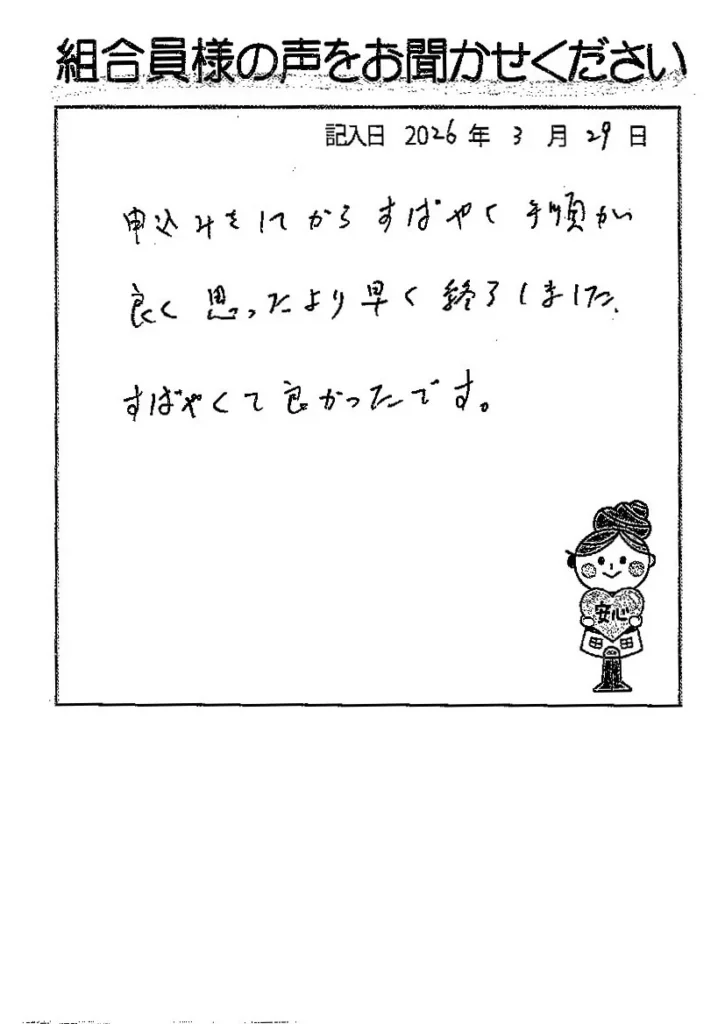 組合員様の声をお聞かせください
記入日 2026 年 3 月 29 日
申込みをしてからすばやく手順が
良く思ったより早く終了しました、
すばやくて良かったです。
安心